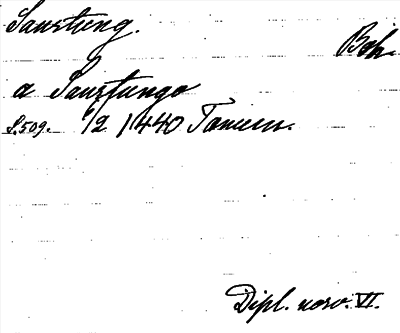 Saustung. Boh.
a Saustungo
S. 509. 9/2 1440 Tanum.
Dipl. norv. VI.